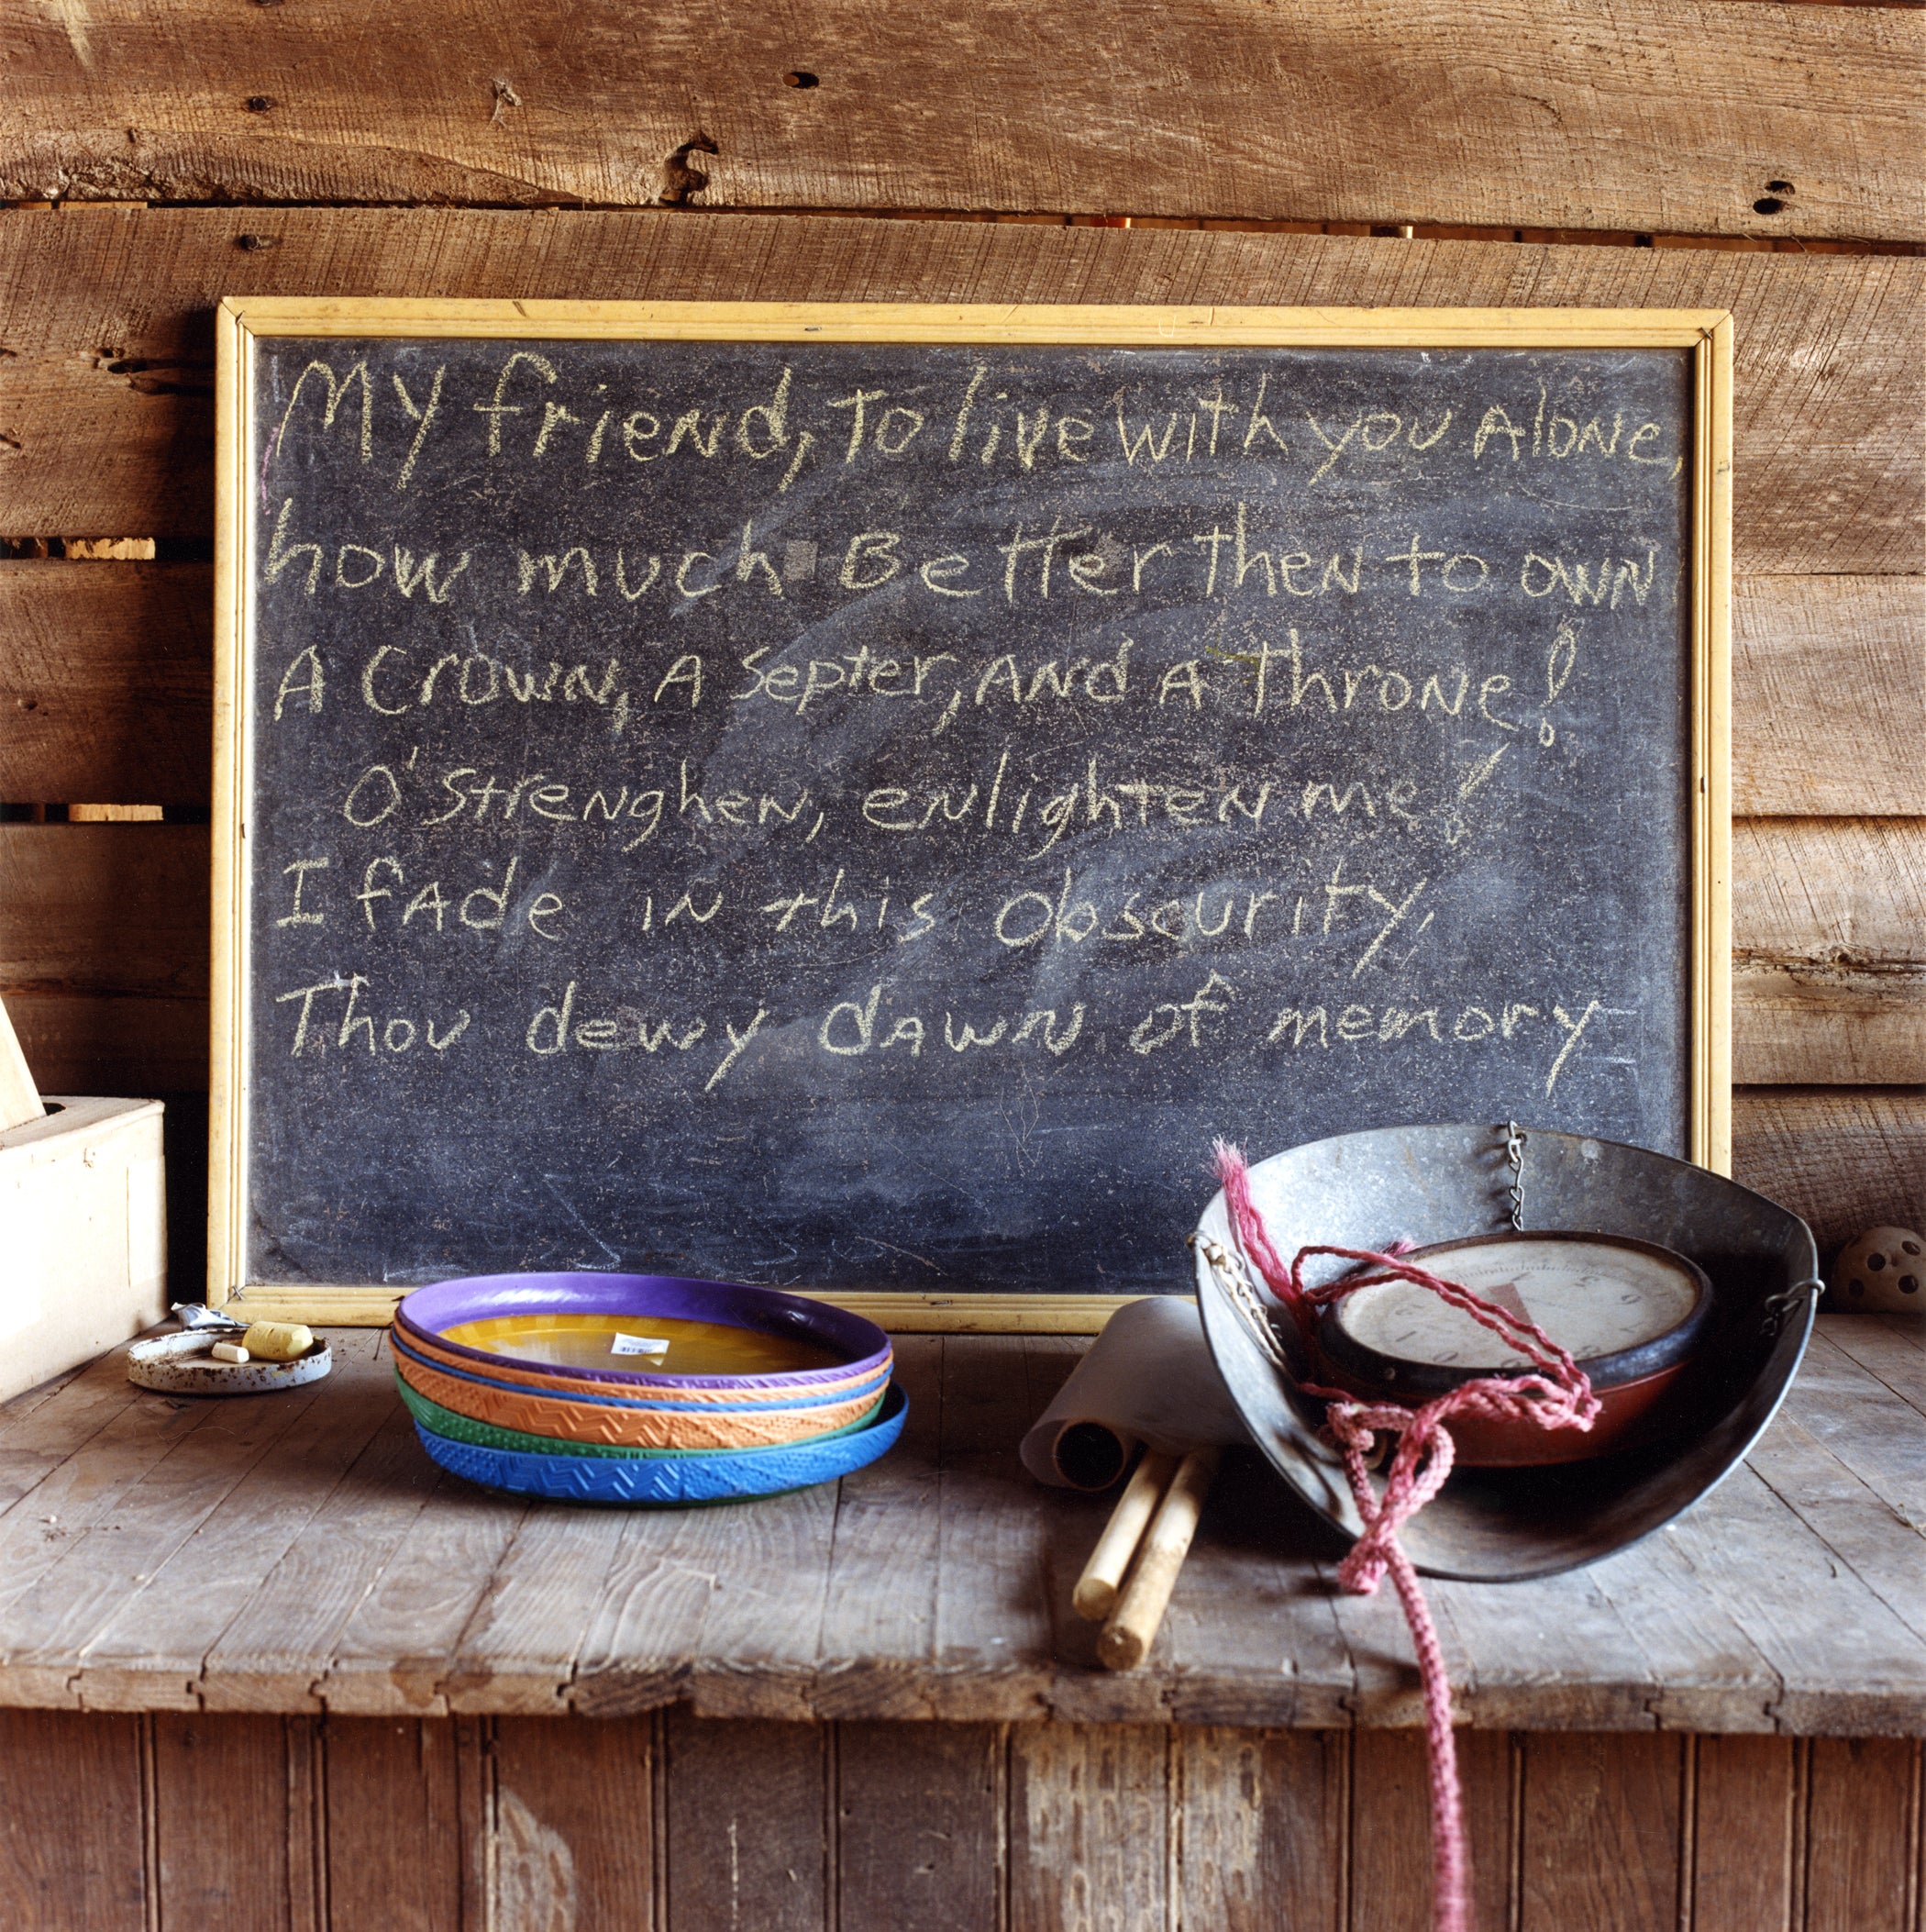 My friend, To live with you Alone,
how much Better then to own
A Crown, A Septer, And A Throne!
O' Strenghen, enlighten me!
I fAde in this Obscurity,
Thou dewy dawn of memory